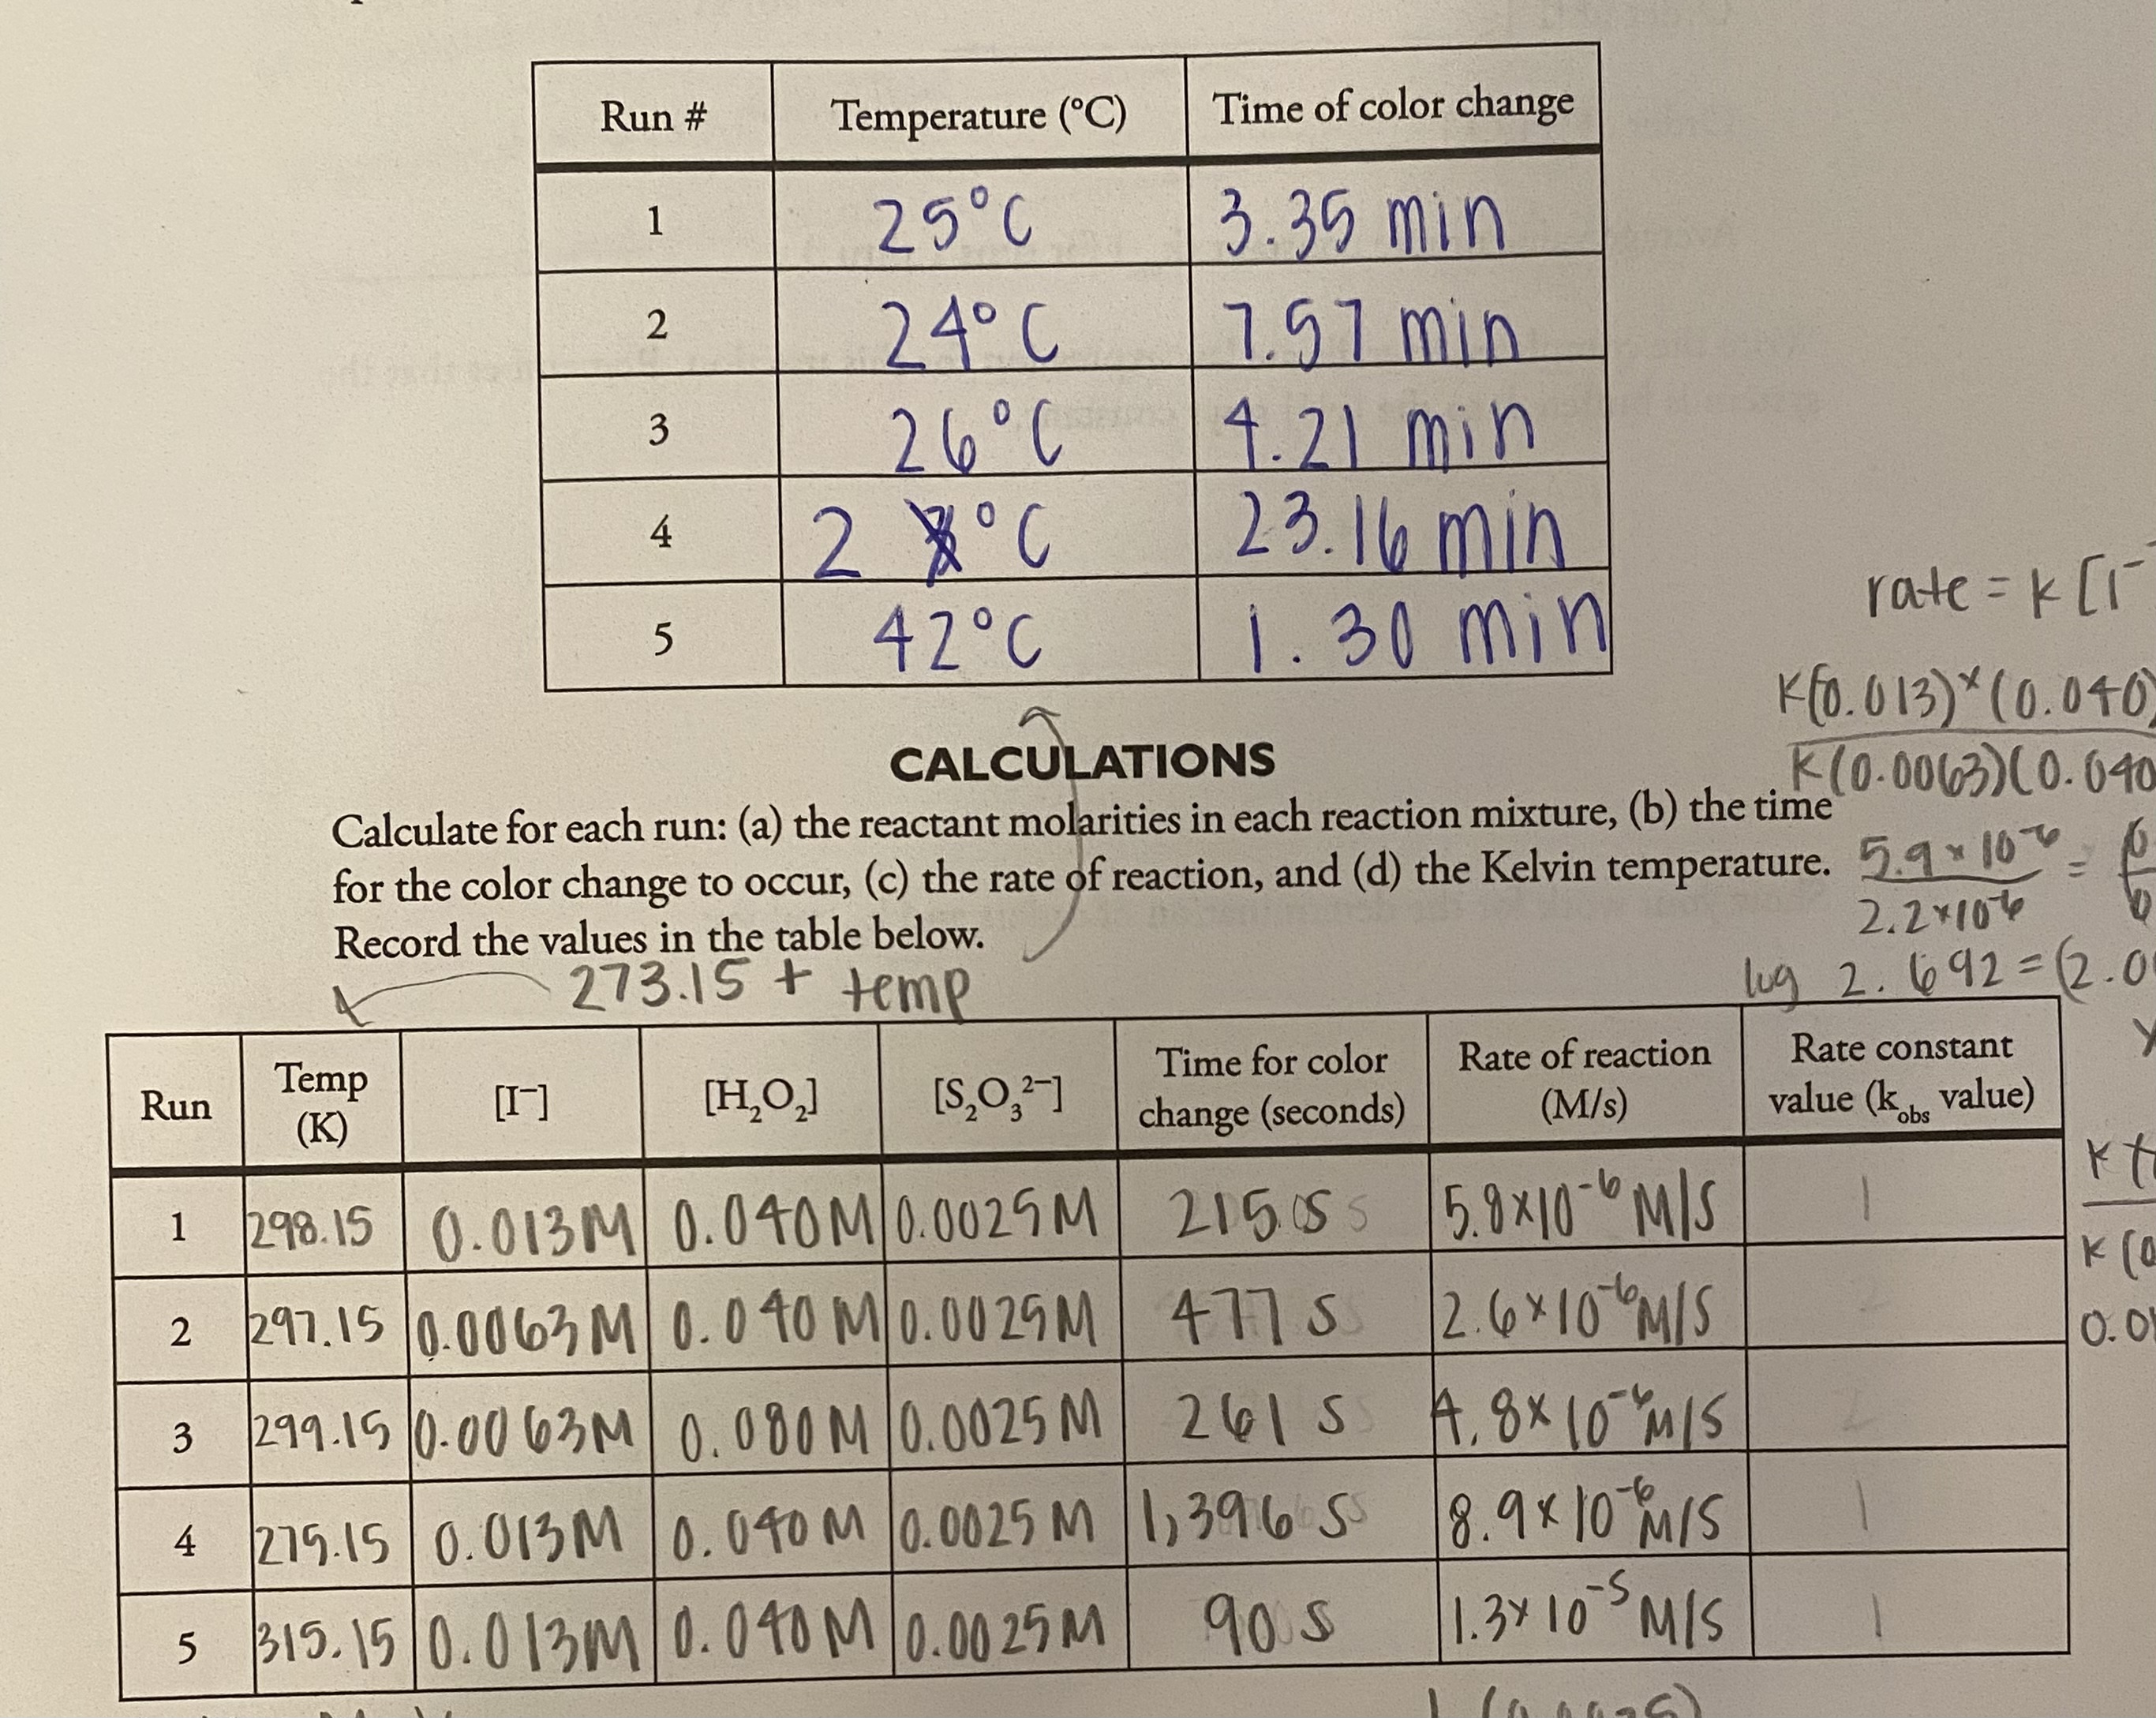 Run # Temperature (°C) Time of color change
1 25°C 3.35 min
2 24°C 7.57 min
3 26°C 4.21 min
4 2 °C 23.16 min
5 42°C 1.30 min
rate = k [I⁻
K(0.013)ˣ(0.040)
K(0.0063)(0.040
CALCULATIONS
Calculate for each run: (a) the reactant molarities in each reaction mixture, (b) the time
for the color change to occur, (c) the rate of reaction, and (d) the Kelvin temperature.
Record the values in the table below.
5.9 × 10⁻⁶ =
2.2×10⁻⁶
log 2.692 = (2.0
273.15 + temp
Run Temp (K) [I⁻] [H₂O₂] [S₂O₃²⁻] Time for color change (seconds) Rate of reaction (M/s) Rate constant value (k_obs value)
1 298.15 0.013M 0.040M 0.0025M 215 s 5.8×10⁻⁶ M/S 1
2 297.15 0.0063M 0.040M 0.0025M 477 s 2.6×10⁻⁶ M/S
3 299.15 0.0063M 0.080M 0.0025M 261 s 4.8×10⁻⁶ M/S
4 275.15 0.013M 0.040M 0.0025M 1,396 s 8.9×10⁻⁶ M/S 1
5 315.15 0.013M 0.040M 0.0025M 90 s 1.3×10⁻⁵ M/S 1
K (0
0.01